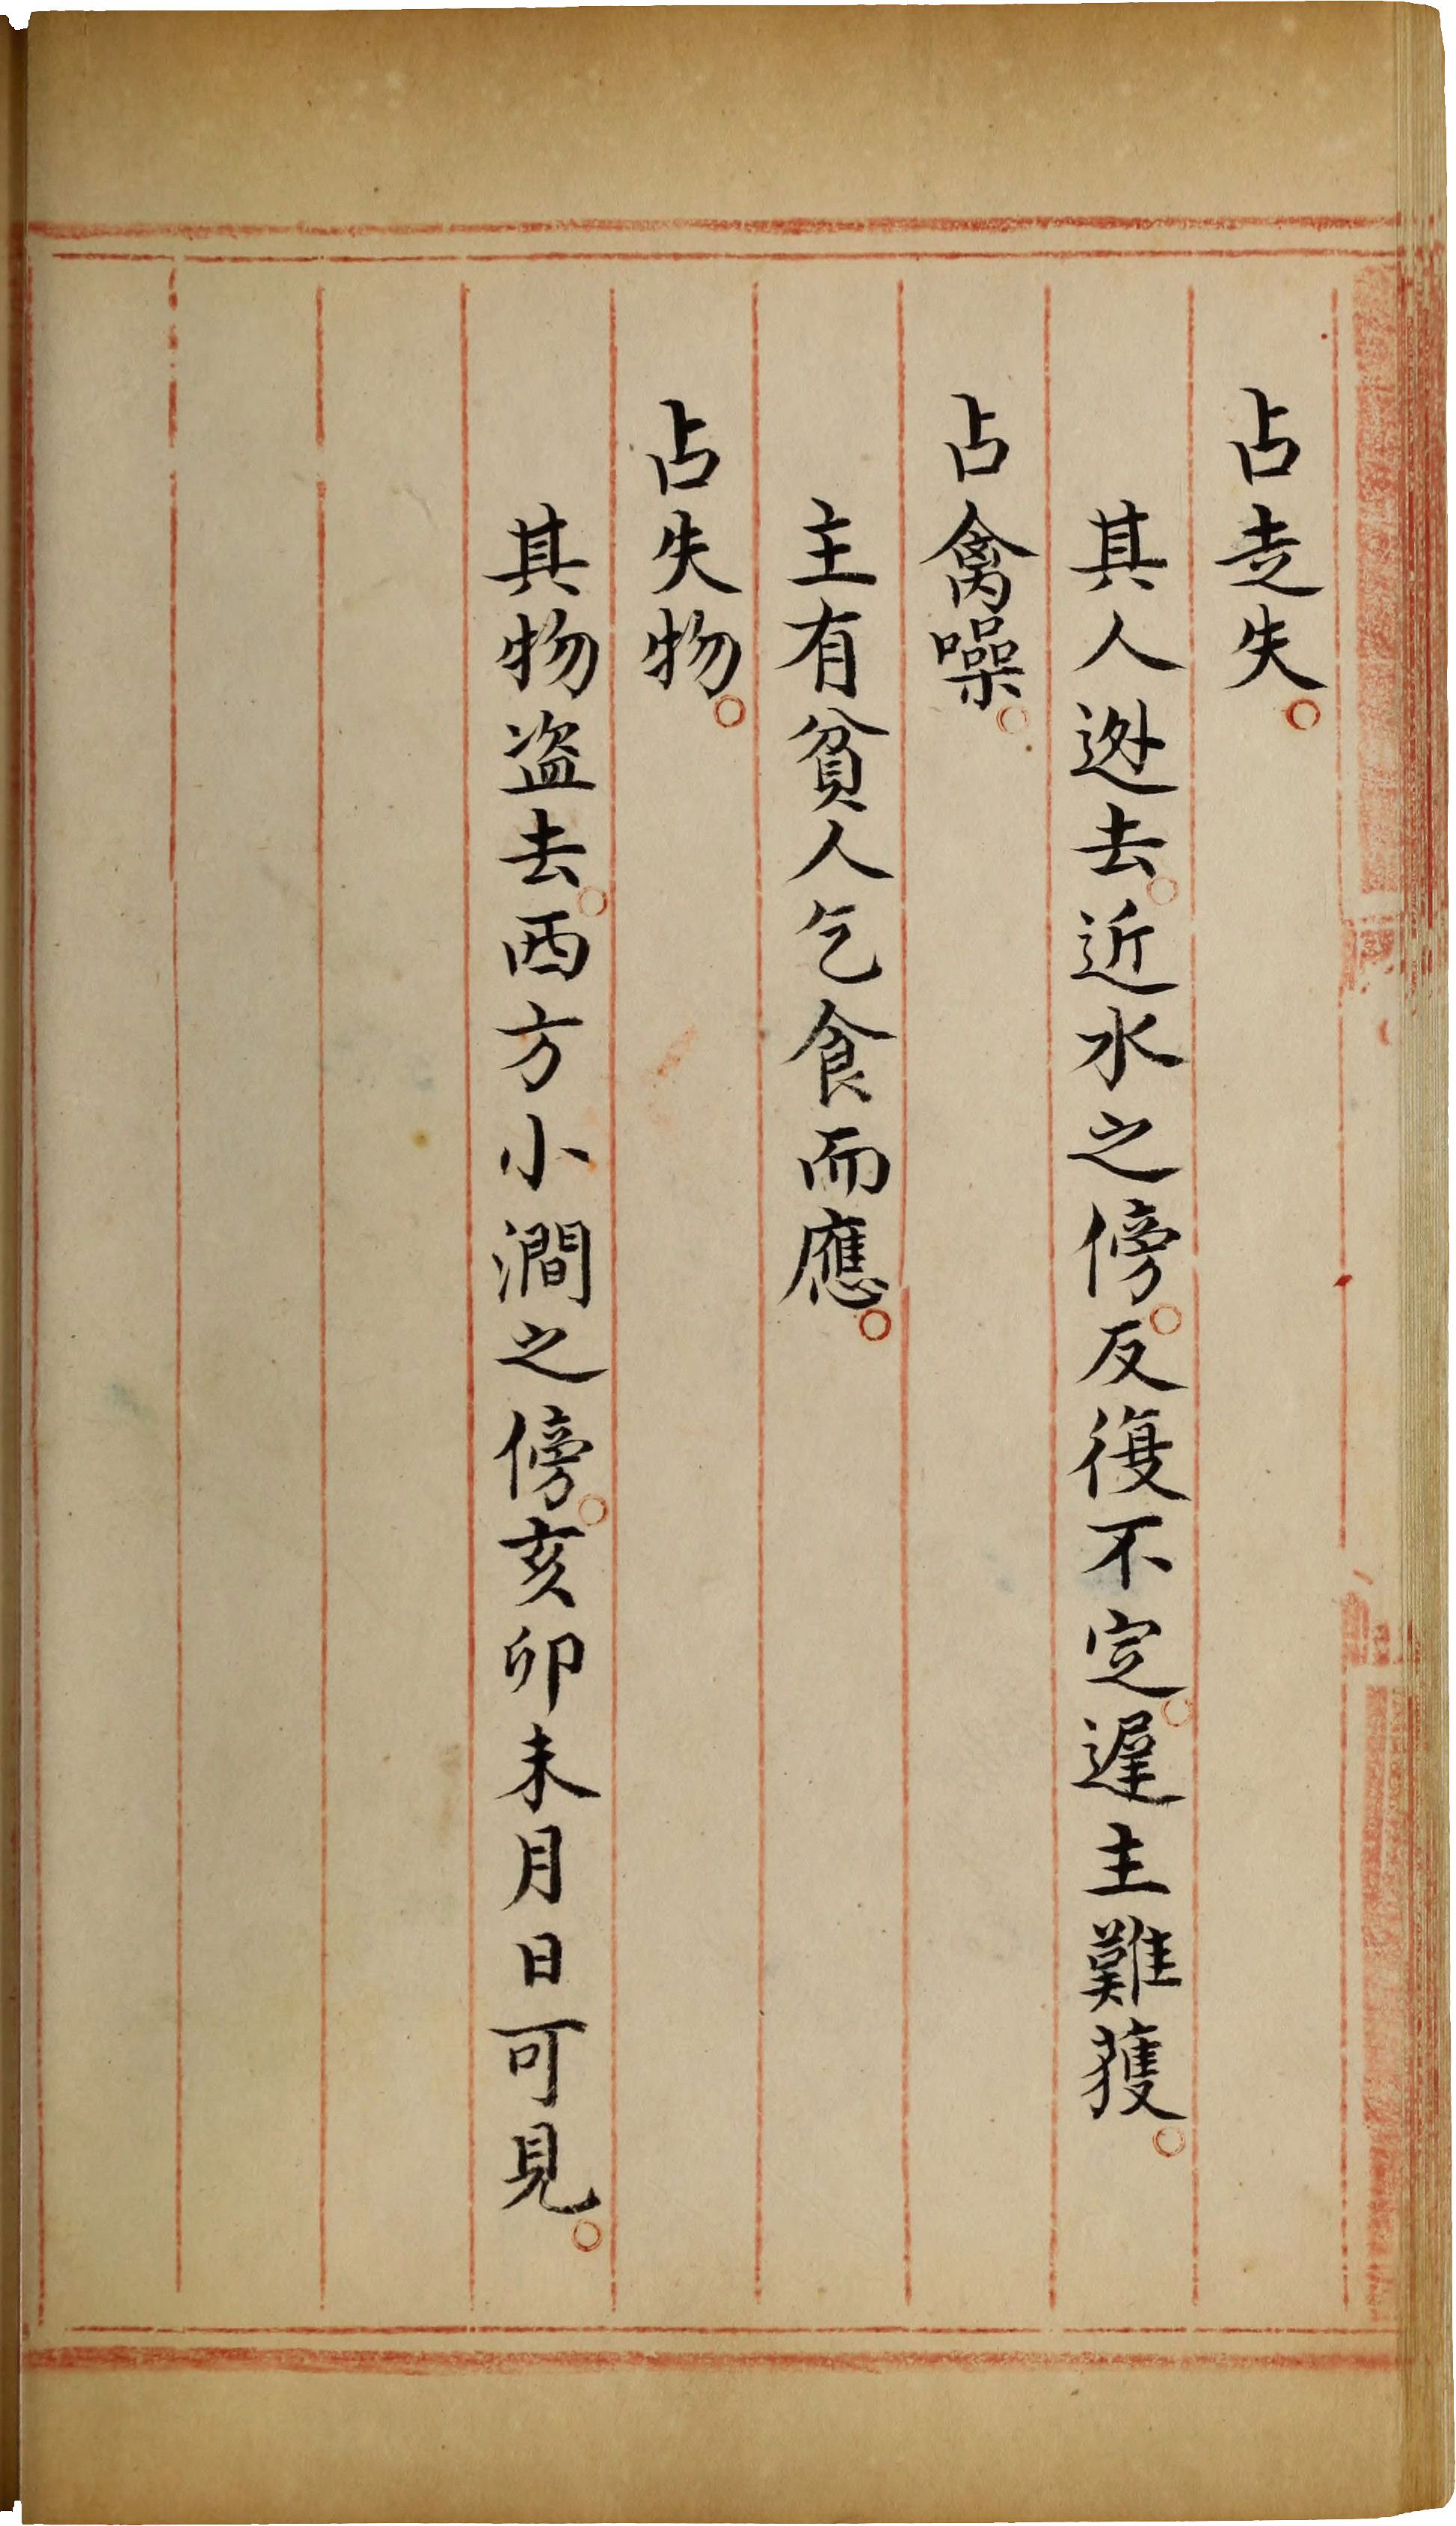 占走失。
其人迯去。近水之傍。反復不定。遲主難獲。
占禽噪。
主有貧人乞食而應。
占失物。
其物盗去。西方小澗之傍。亥卯未月日可見。